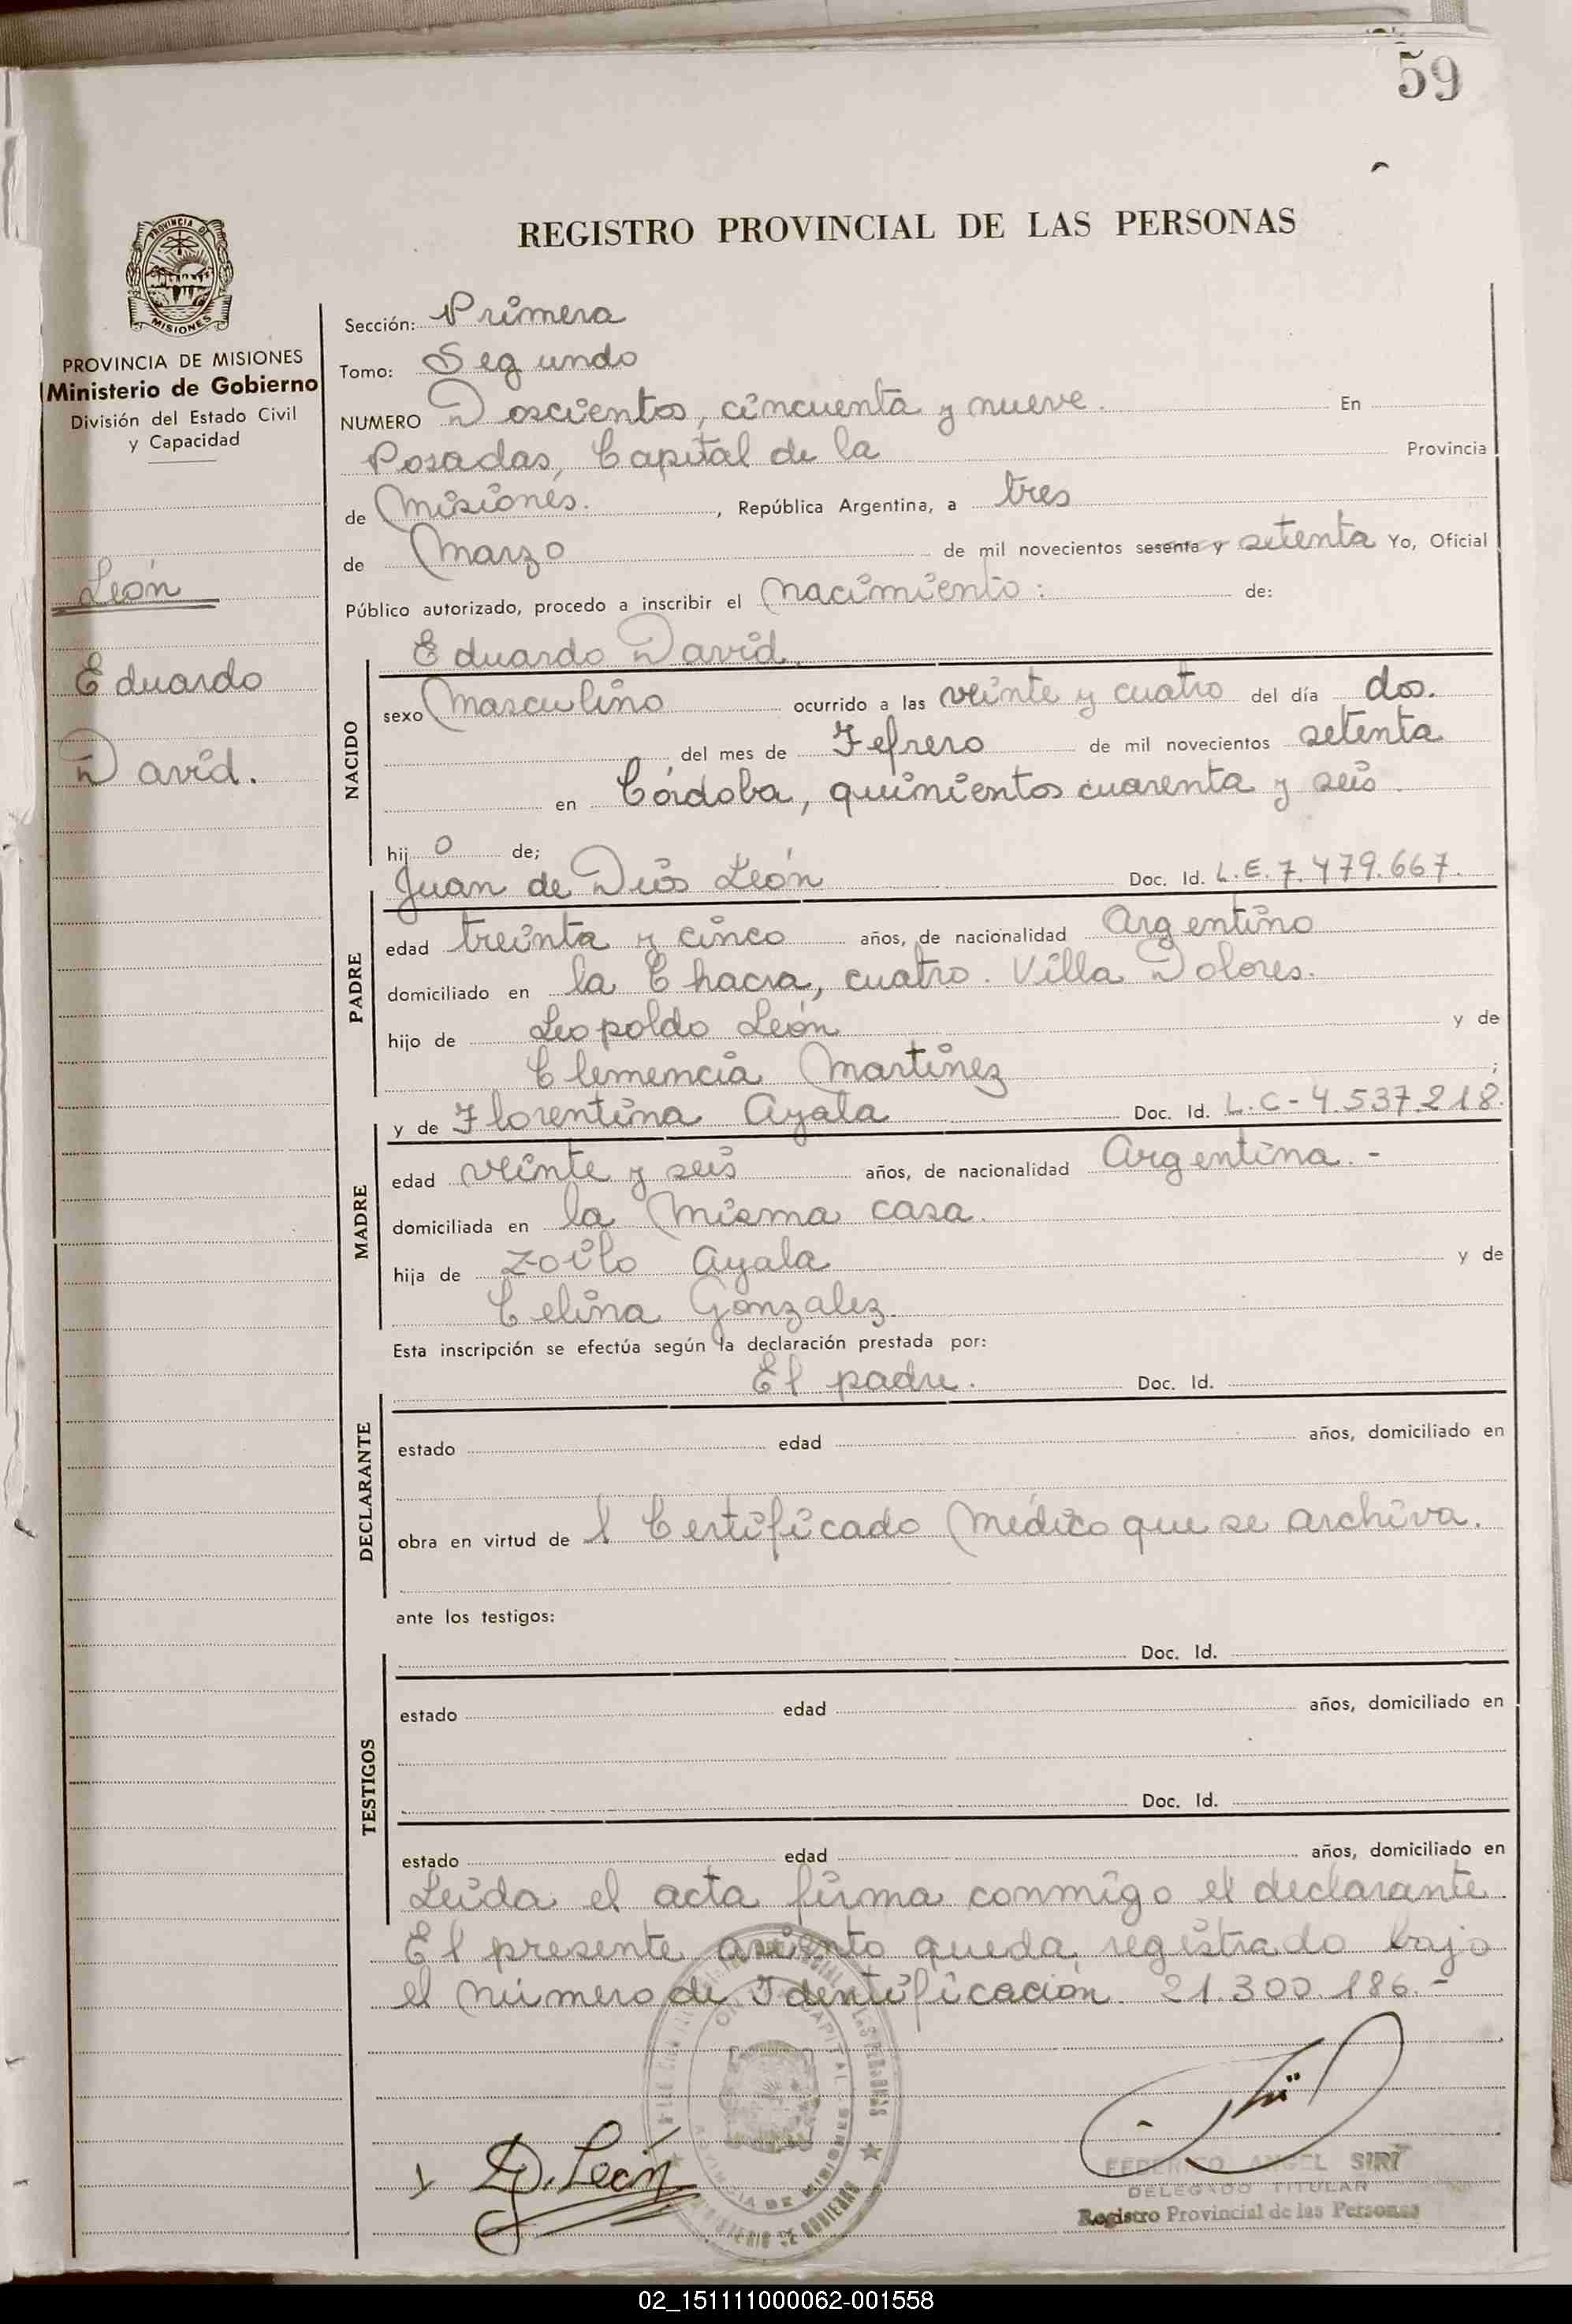 59
REGISTRO PROVINCIAL DE LAS PERSONAS
PROVINCIA DE
MISIONES
PROVINCIA DE MISIONES
Ministerio de Gobierno
División del Estado Civil
y Capacidad
León
Eduardo
David.
Sección: Primera
Tomo: Segundo
NUMERO Doscientos, cincuenta y nueve. En
Posadas, Capital de la Provincia
de Misiones. , República Argentina, a tres
de Marzo de mil novecientos sesenta y setenta Yo, Oficial
Público autorizado, procedo a inscribir el nacimiento: de:
Eduardo David.
NACIDO
sexo Masculino ocurrido a las veinte y cuatro del día dos.
del mes de Febrero de mil novecientos setenta
en Córdoba, quinientos cuarenta y seis.
hijo de;
Juan de Dios León Doc. Id. L.E. 7.479.667.
PADRE
edad treinta y cinco años, de nacionalidad Argentino
domiciliado en la Chacra, cuatro. Villa Dolores.
hijo de Leopoldo León y de
Clemencia Martínez ;
y de Florentina Ayala Doc. Id. L.C-4.537.218.
MADRE
edad veinte y seis años, de nacionalidad Argentina.-
domiciliada en la misma casa.
hija de Zoilo Ayala y de
Celina Gonzalez.
Esta inscripción se efectúa según la declaración prestada por:
El padre. Doc. Id.
DECLARANTE
estado edad años, domiciliado en
obra en virtud de l Certificado Médico que se archiva.
ante los testigos:
Doc. Id.
TESTIGOS
estado edad años, domiciliado en
Doc. Id.
estado edad años, domiciliado en
Leída el acta firma conmigo el declarante
El presente asiento queda registrado bajo
el número de Identificación. 21.300.186.-
D. León
FEDERICO ANGEL SIRI
DELEGADO TITULAR
Registro Provincial de las Personas
02_151111000062-001558